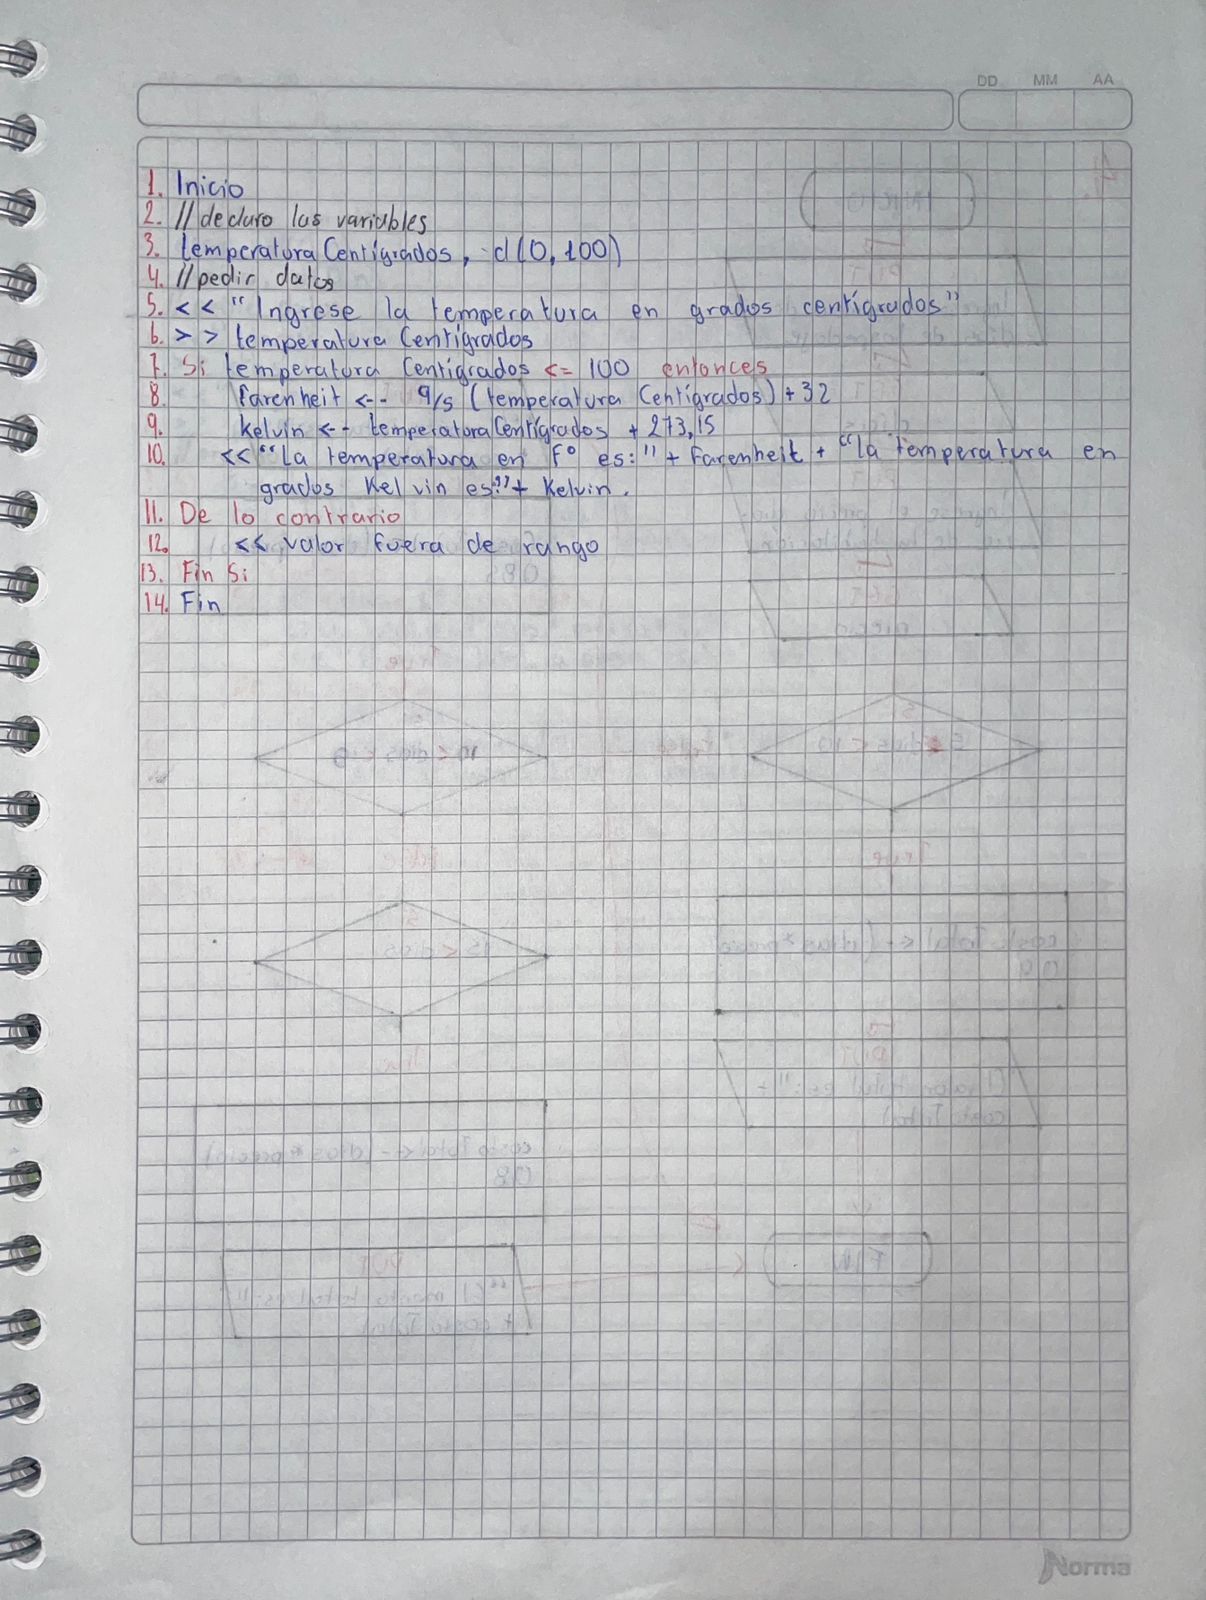 DD MM AA
1. Inicio
2. // declaro las variables
3. temperatura Centígrados, d(0,100)
4. // pedir datos
5. << "Ingrese la temperatura en grados centígrados"
6. >> temperatura Centígrados
7. Si temperatura Centigrados <= 100 entonces
8. Farenheit <-- 9/5 (temperatura Centígrados) + 32
9. Kelvin <-- temperatura Centígrados + 273,15
10. << "La temperatura en F° es:" + Farenheit + "la temperatura en
grados Kelvin es:" + Kelvin.
11. De lo contrario
12. << valor fuera de rango
13. Fin Si
14. Fin
Norma